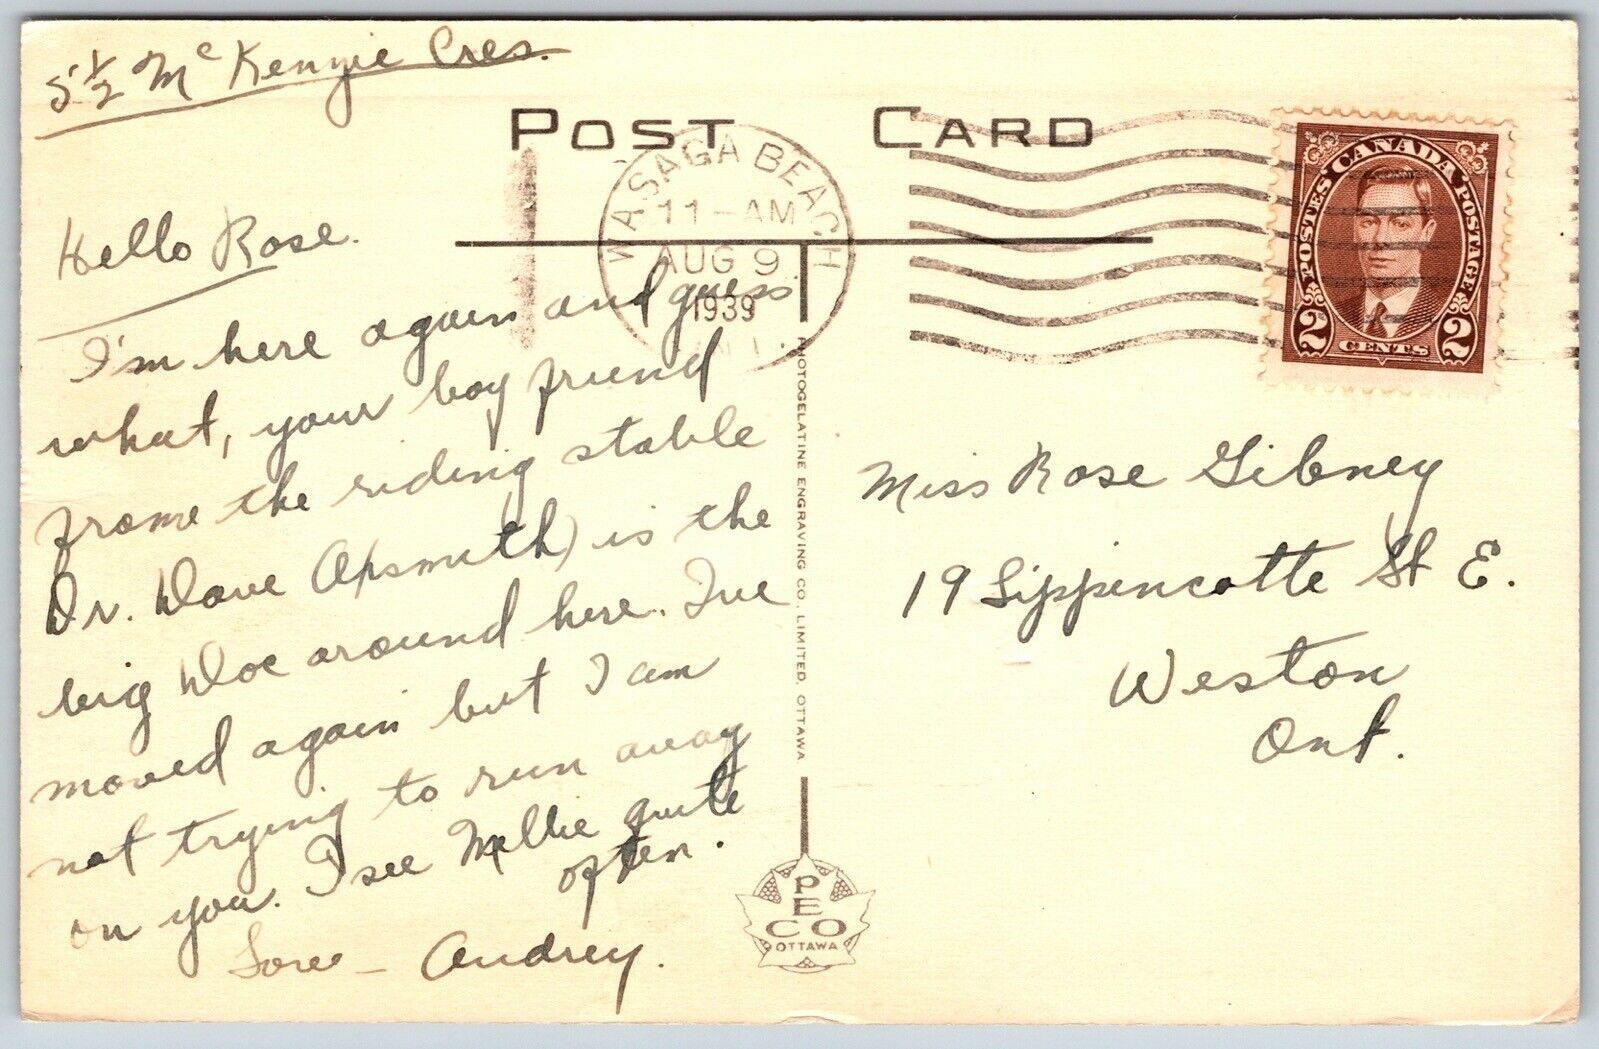 5½ McKenzie Cres.
POST CARD
WASAGA BEACH
11-AM
AUG 9
1939
CANADA
POSTES POSTAGE
2 2
CENTS
Hello Rose.
I'm here again and guess
what, your boy friend
frome the riding stable
Dr. Dave Apsmith) is the
big Doc around here. Ive
moved again but I am
not trying to run away
on you. I see Millie quite
often.
Love - Audrey.
PHOTOGELATINE ENGRAVING CO., LIMITED, OTTAWA
PECO
OTTAWA
Miss Rose Gibney
19 Lippencotte St E.
Weston
Ont.